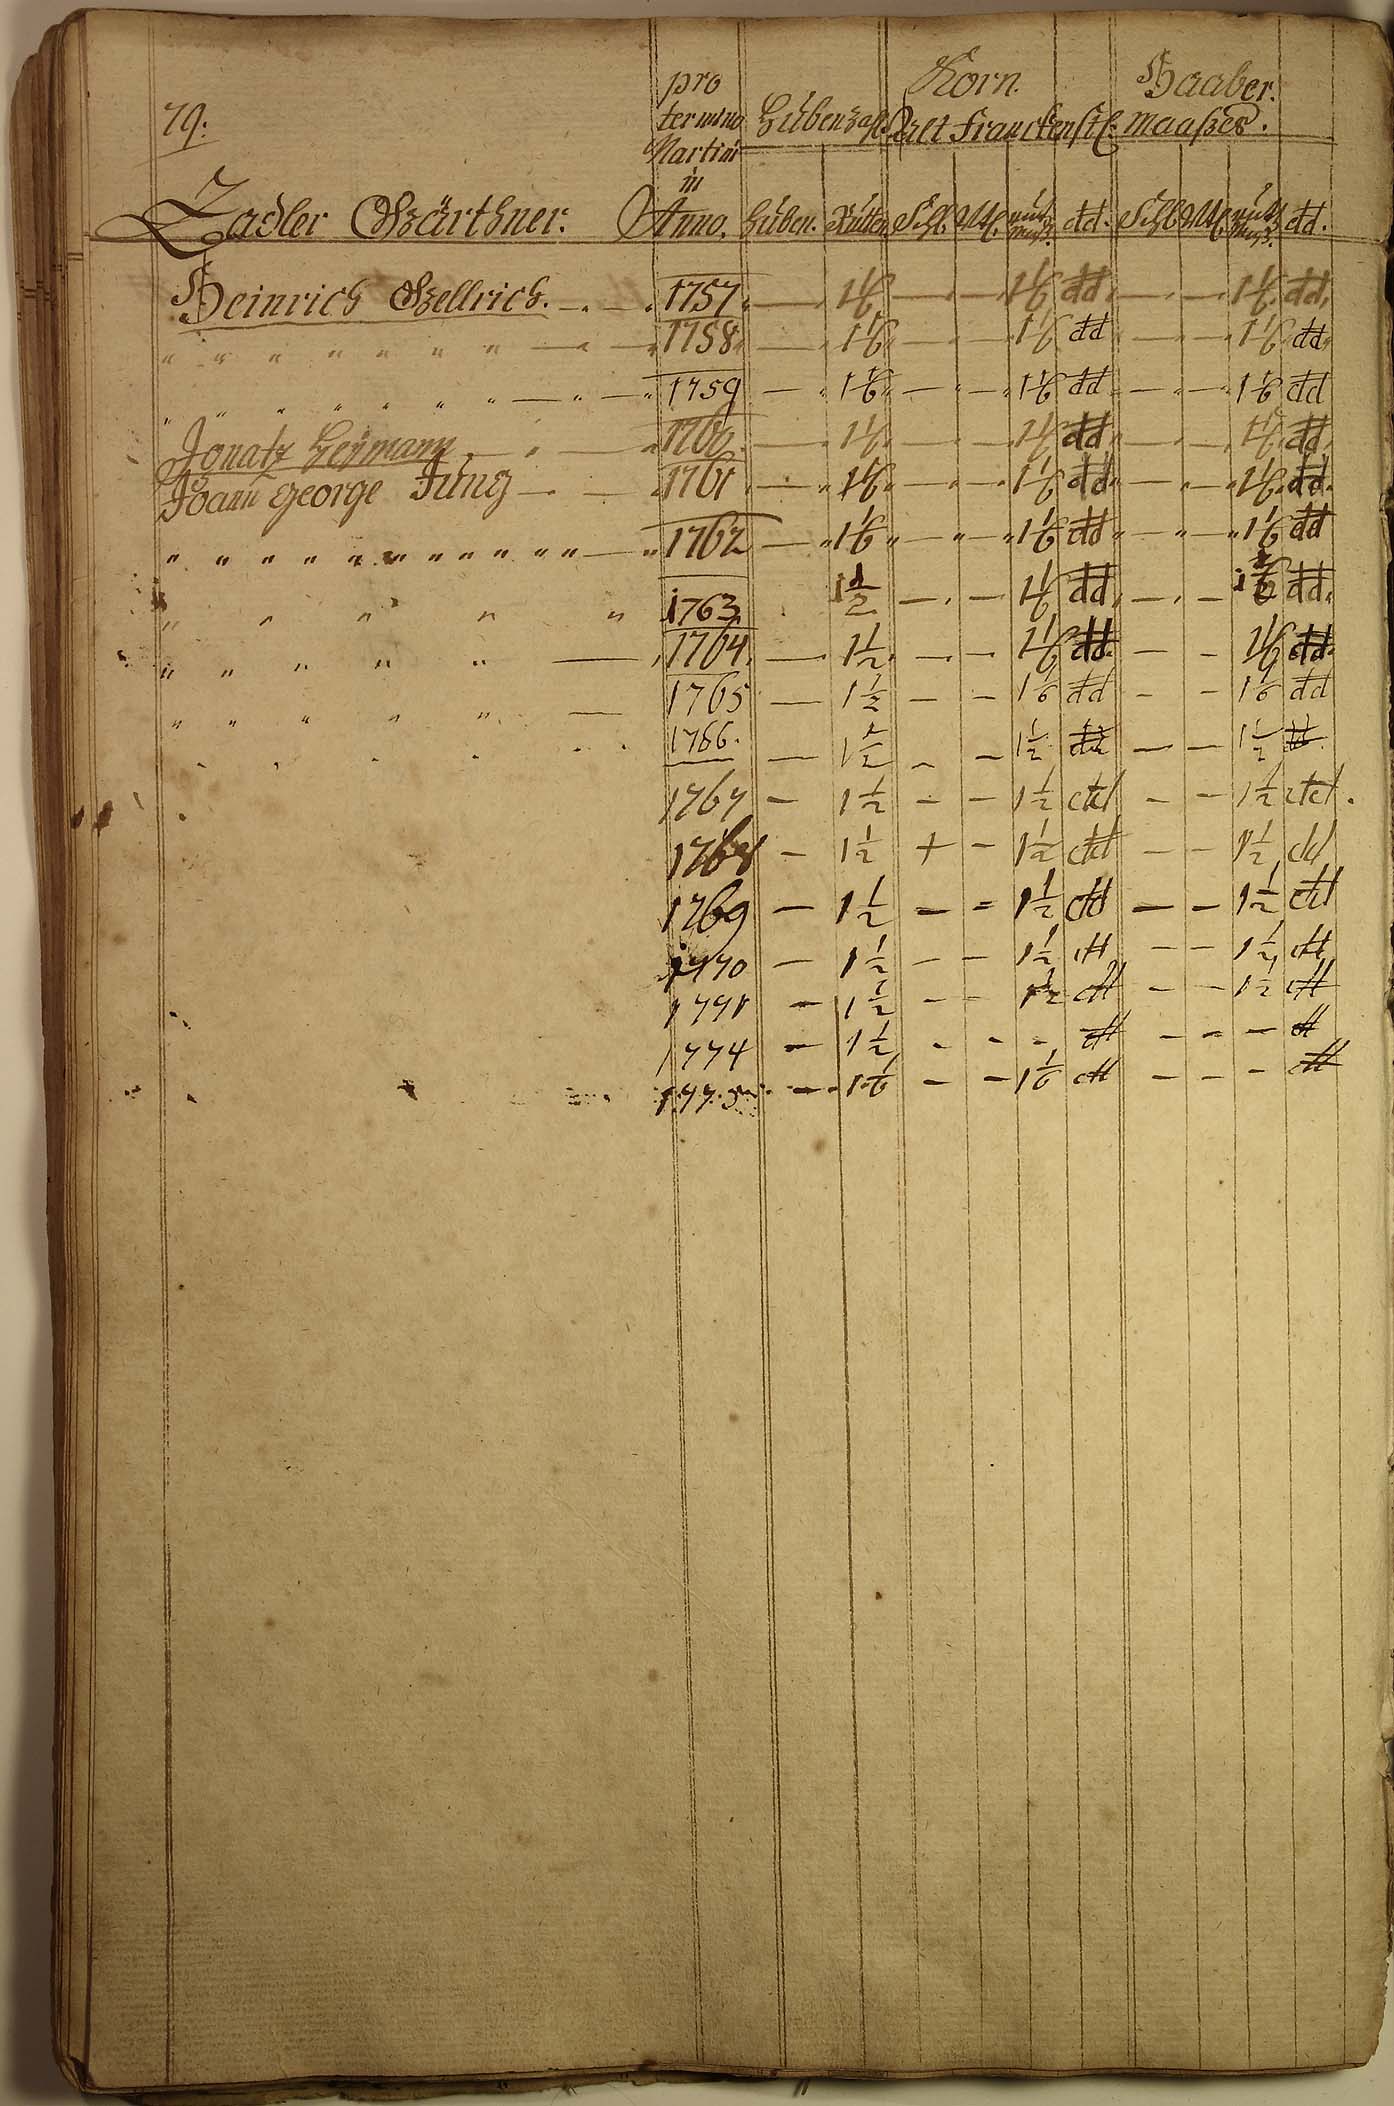 79.
pro termino Martini in Anno.
Korn. Haaber.
Hubenzahl Alt Franckenst: Maaßes.
Zadler Gärthner.
Huben. Rutten. Schl. Vtl. dd. Schl. Vtl. dd.
Heinrich Gellrich. 1757 — 1 1/6 — — 1 1/6 dd — — 1 1/6 dd
" " " " " " " " 1758 — 1 1/6 — — 1 1/6 dd — — 1 1/6 dd
" " " " " " " 1759 — 1 1/6 — — 1 1/6 dd — — 1 1/6 dd
Ignatz Heymann 1760 — 1 1/6 — — 1 1/6 dd — — 1 1/6 dd
Joann George Jüng 1761 — 1 1/6 — — 1 1/6 dd — — 1 1/6 dd
" " " " " " " " " " " " 1762 — 1 1/6 — — 1 1/6 dd — — 1 1/6 dd
" " " " " 1763 1 1/2 — — 1 1/6 dd — — 1 1/6 dd
" " " " " 1764 — 1 1/2 — — 1 1/6 dd — — 1 1/6 dd
" " " " " 1765 — 1 1/2 — — 1 1/6 dd — — 1 1/6 dd
1766. — 1 1/2 — — 1 1/2 dd — — 1 1/2 dd
1767 — 1 1/2 — — 1 1/2 dd — — 1 1/2 dd.
1768 — 1 1/2 + — 1 1/2 dd — — 1 1/2 dd
1769 — 1 1/2 — = 1 1/2 dd — — 1 1/2 dd
1770 — 1 1/2 — — 1 1/2 dd — — 1 1/2 dd
1771 — 1 1/2 — — 1 1/2 dd — — 1 1/2 dd
1774 — 1 1/2 — — — dd — — — dd
1775 — 1 1/6 — — 1 1/6 dd — — — dd